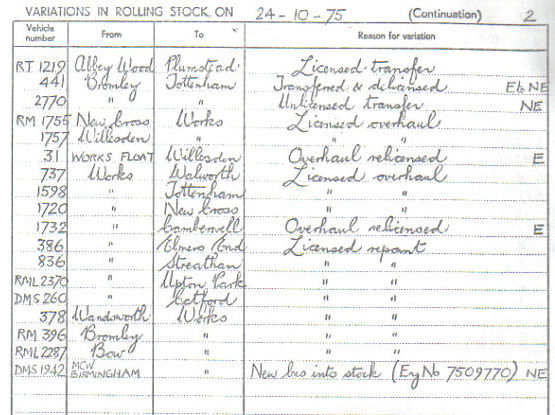 VARIATIONS IN ROLLING STOCK, ON 24-10-75 (Continuation) 2
Vehicle number From To Reason for variation
RT 1219 Abbey Wood Plumstead Licensed transfer
441 Bromley Tottenham Transferred & delicensed Eb NE
2770 " " Unlicensed transfer NE
RM 1755 New Cross Works Licensed overhaul
1757 Willesden " " "
31 WORKS FLOAT Willesden Overhaul relicensed E
737 Works Walworth Licensed overhaul
1598 " Tottenham " "
1720 " New Cross " "
1732 " Camberwell Overhaul relicensed E
386 " Elmers End Licensed repaint
836 " Streatham " "
RML 2370 " Upton Park " "
DMS 260 " Catford " "
378 Wandsworth Works " "
RM 396 Bromley " " "
RML 2287 Bow " " "
DMS 1942 MCW BIRMINGHAM " New bus into stock (Eng No 7509770) NE